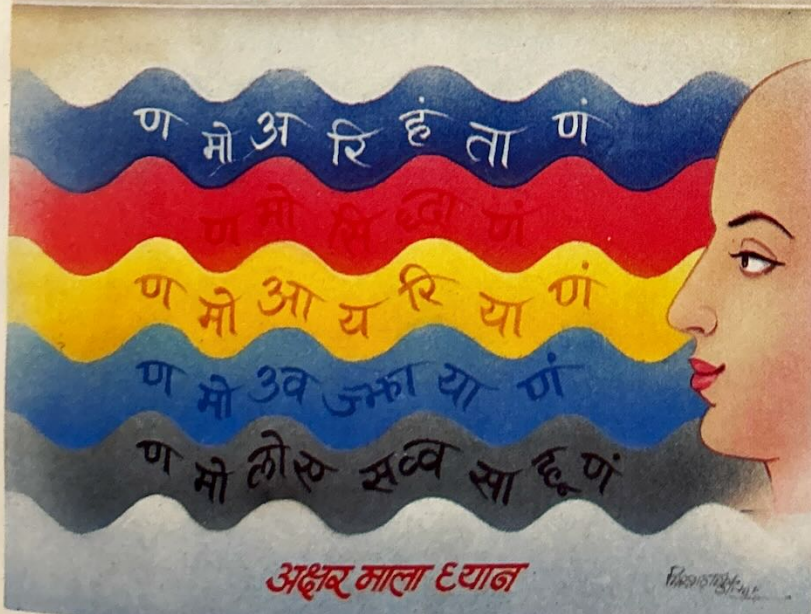 ण मो अ रि हं ता णं
ण मो सि द्धा णं
ण मो आ य रि या णं
ण मो उव ज्झा या णं
ण मो लोए सव्व सा हू णं
अक्षर माला ध्यान